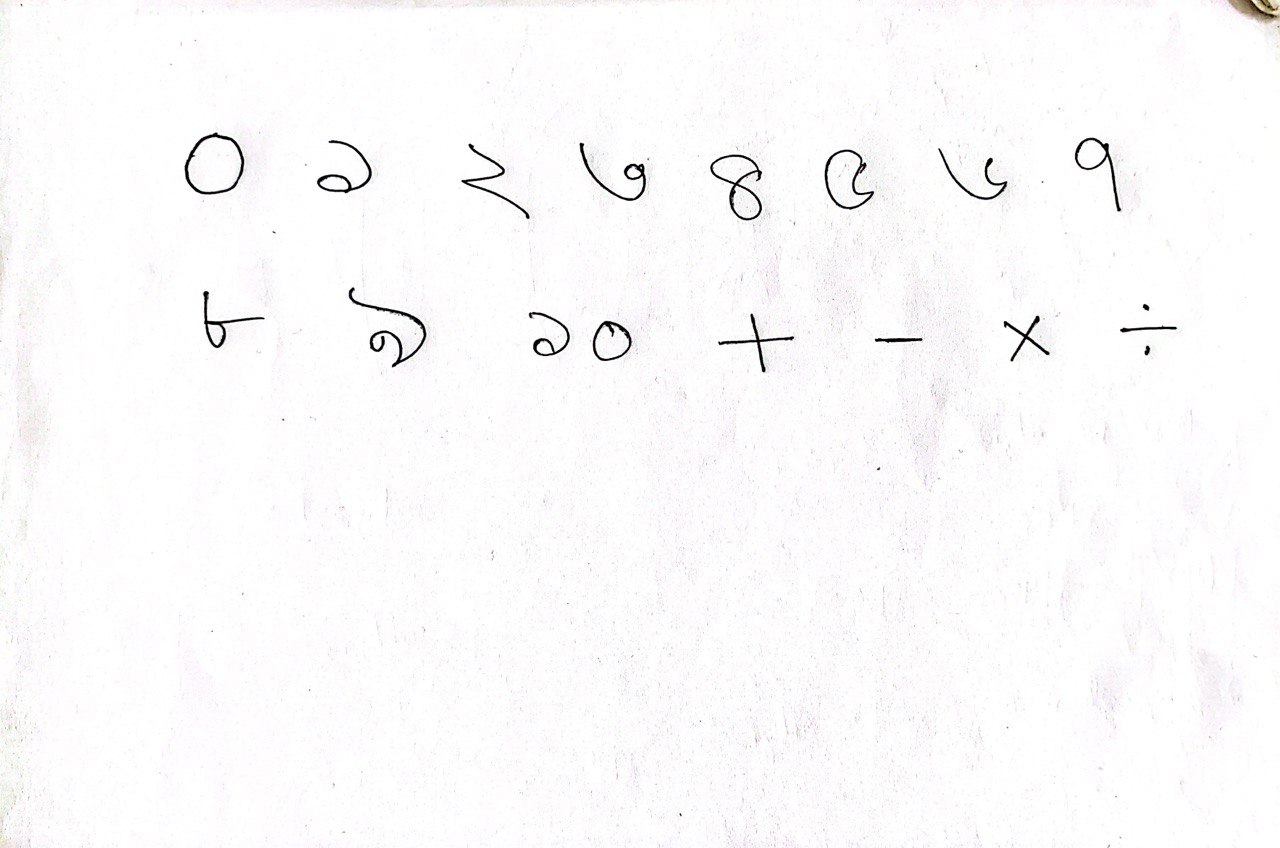 ০ ১ ২ ৩ ৪ ৫ ৬ ৭
৮ ৯ ১০ + - × ÷